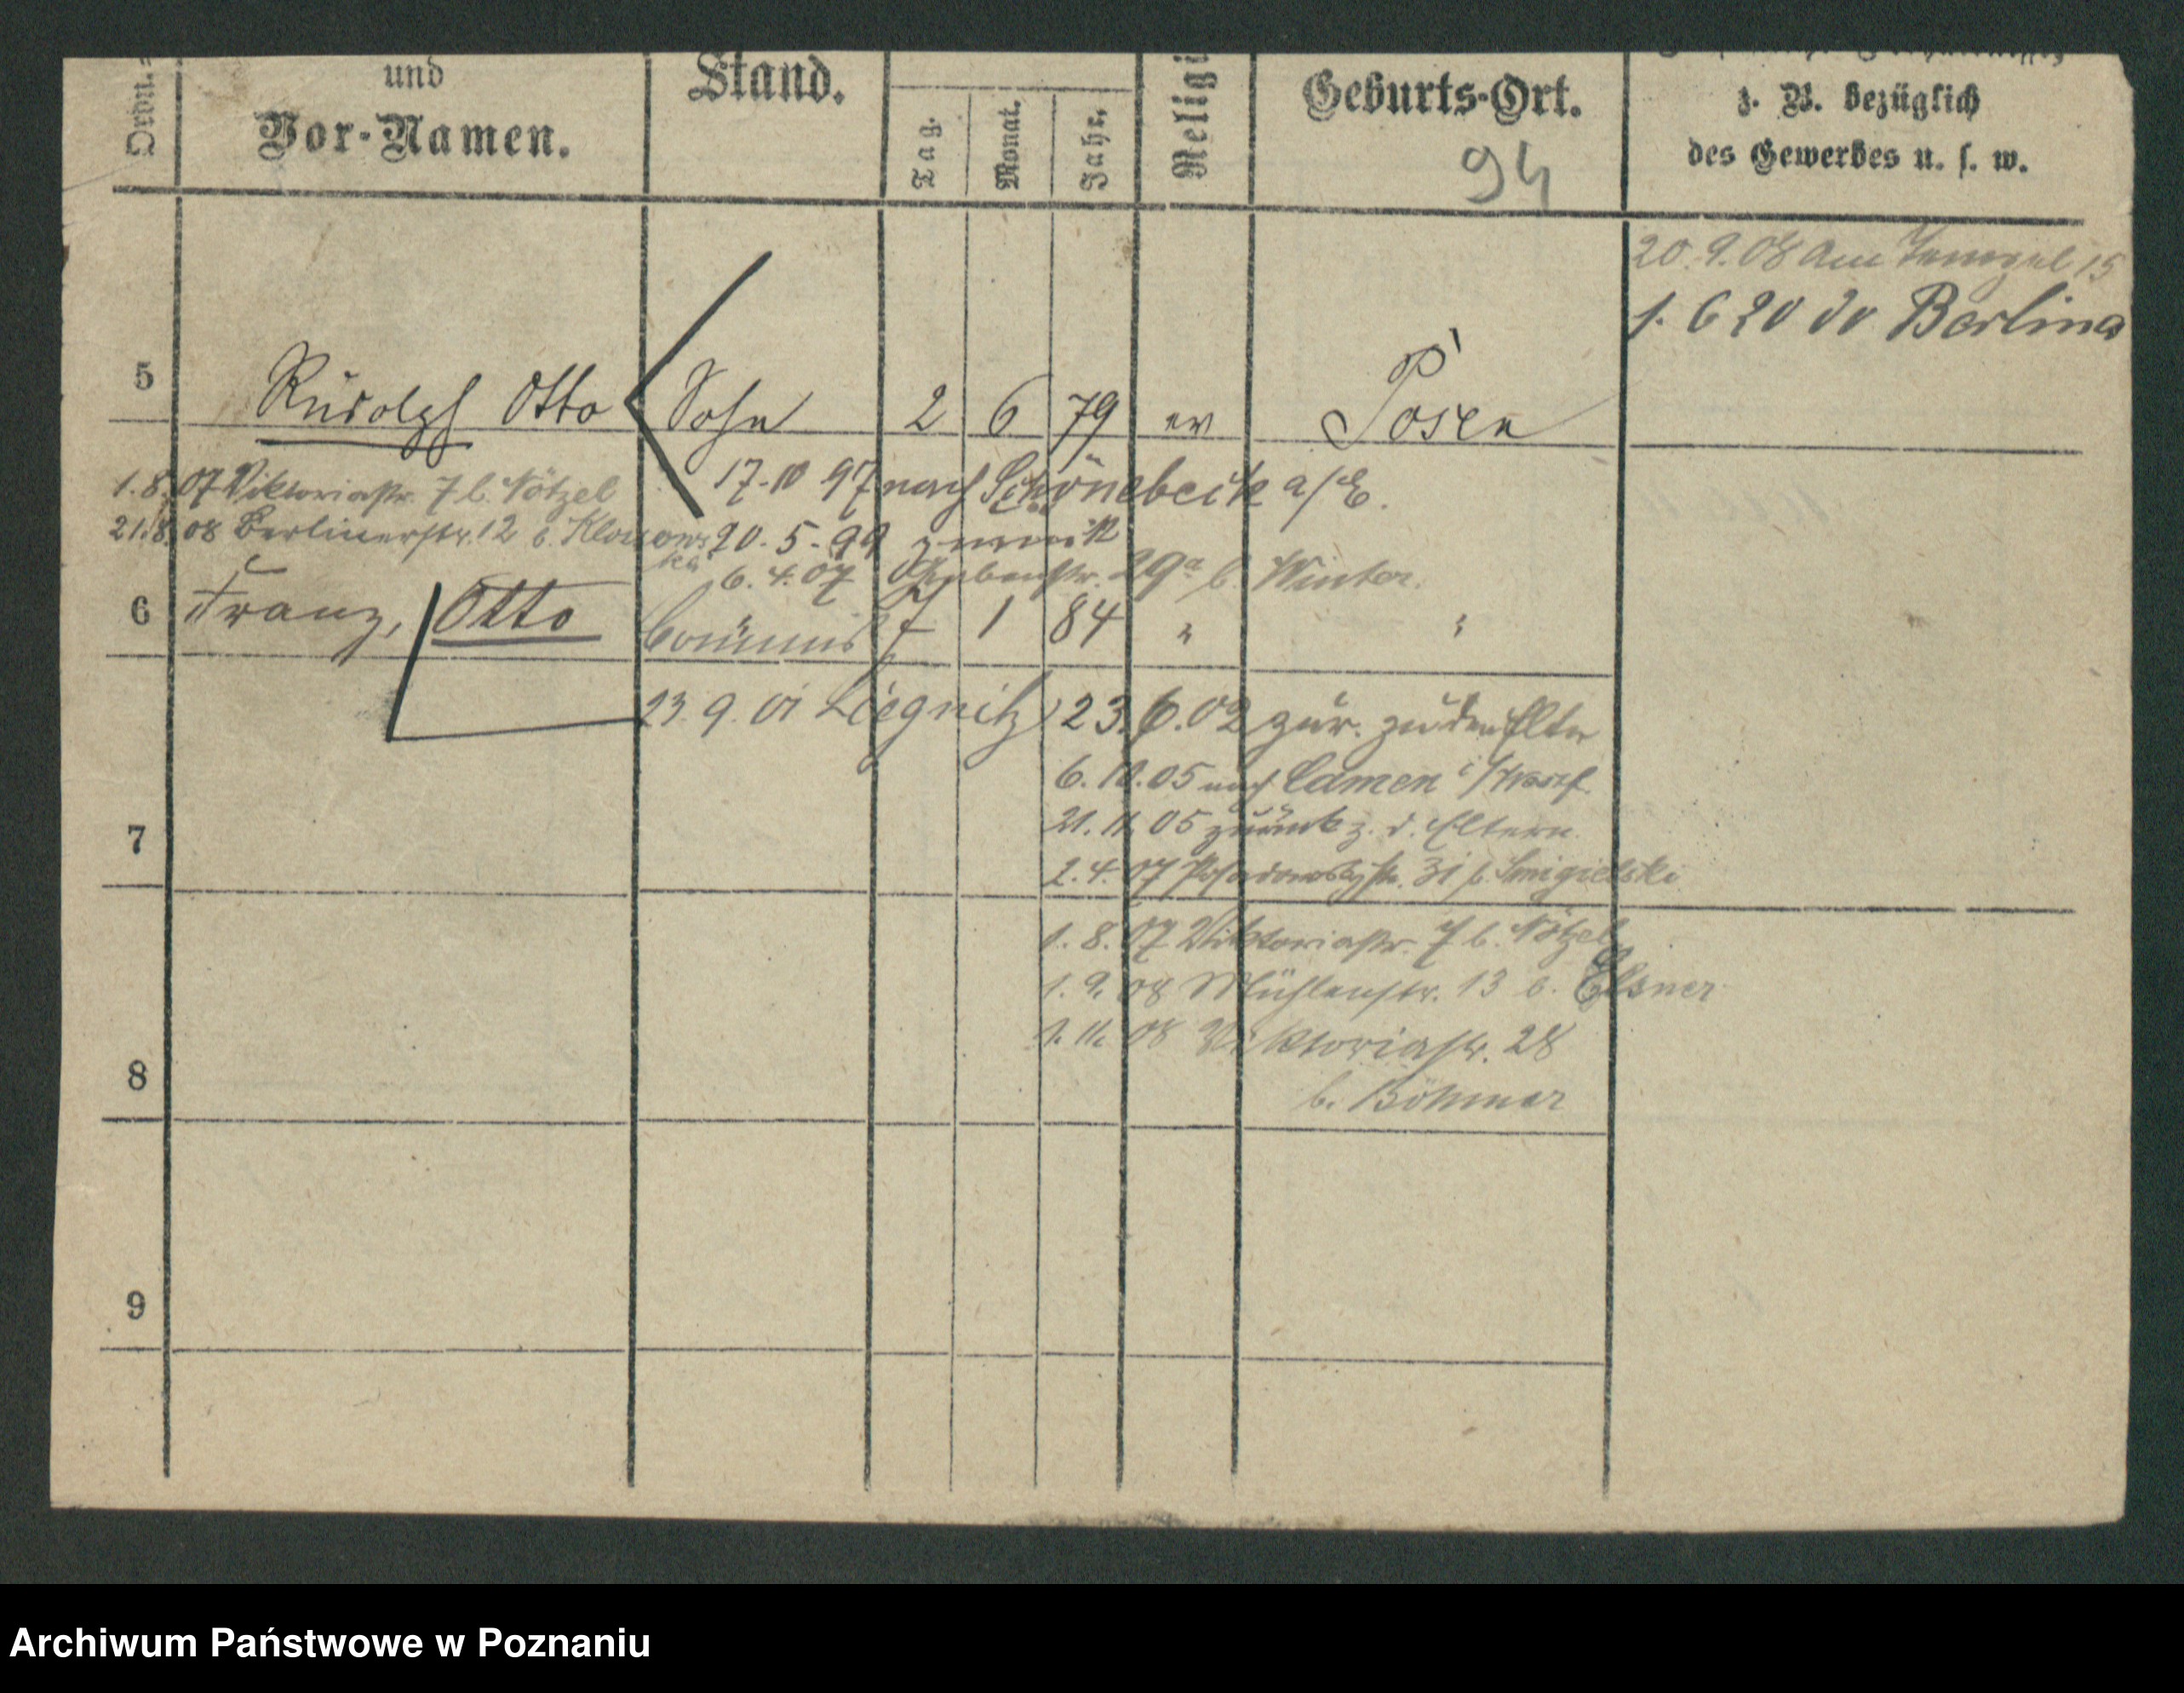 Ordn.
und
Vor-Namen.
Stand.
Tag.
Monat.
Jahr.
Religi
Geburts-Ort.
94
z. B. bezüglich
des Gewerbes u. s. w.
20. 9. 08 Am 15
1. 6 20 Berlin
5 Rudolph Otto Sohn 2 6 79 ev Posen
1. 8. 07 Viktoriastr. 7 b. Nötzel
17. 10 97 nach Schönebeck a/E.
21. 8. 08 Berlinerstr. 12 b.
20. 5. 99 zurück
6. 4. 07 29a b. Winter.
6 Franz, Otto Commis 7 1 84 " "
23. 9. 01 Liegnitz 23. 6. 02 zur. zu den Eltern
6. 10. 05 nach Camen i/Westf.
21. 11. 05 zurück z. d. Eltern
7
2. 4. 07 Posadowskystr. 31 b. Smigielski
1. 8. 07 Viktoriastr. 7 b. Nötzel
1. 9. 08 Mühlenstr. 13 b. Elsner
1. 11. 08 Viktoriastr. 28
8
b. Böhmer
9
Archiwum Państwowe w Poznaniu